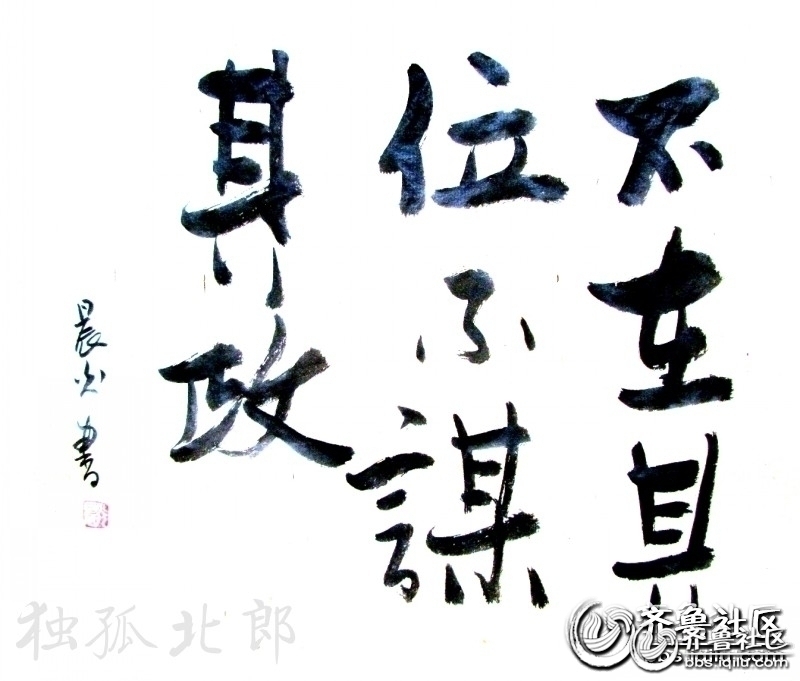 不在其
位不謀
其政
晨光書
独孤北郎
齐鲁社区
齐鲁社区
bbs.iqilu.com